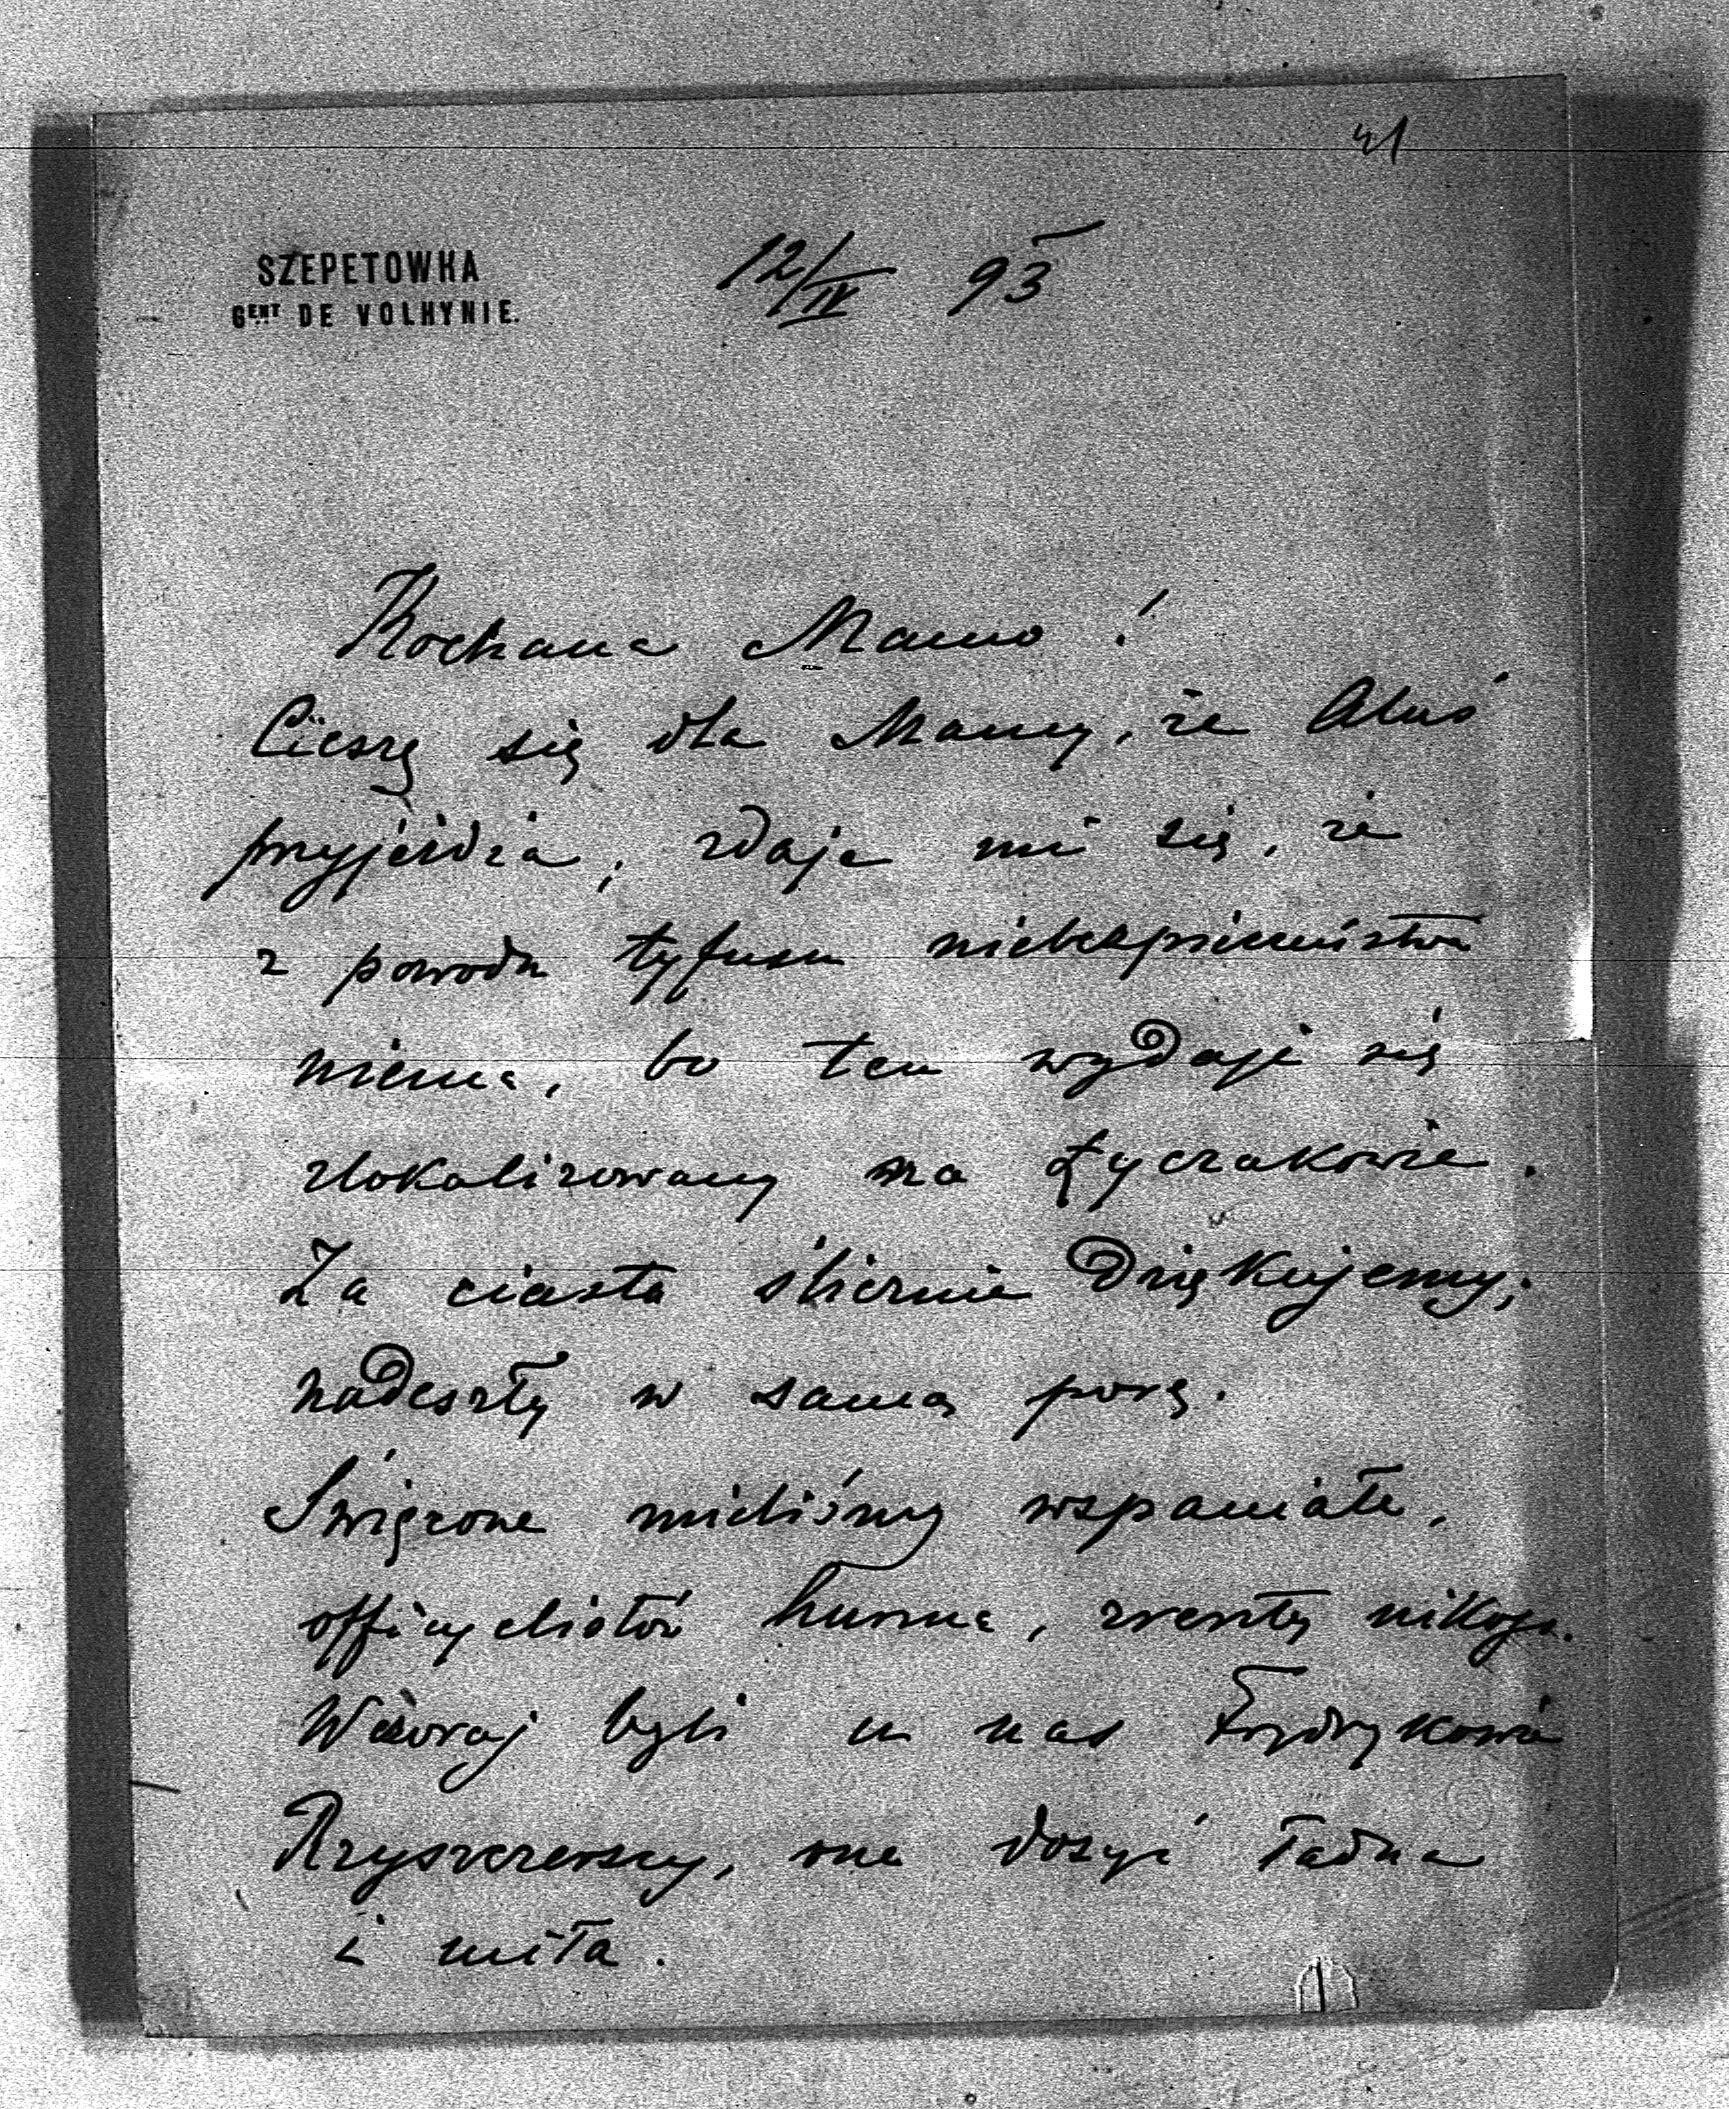 41
SZEPETOWKA
Gent DE VOLHYNIE.
12/IV 93
Kochana Mamo!
Cieszę się dla Mamy, że Aluś
przyjeżdża, zdaje mi się, że
z powodu tyfusu niebezpieczeństwa
niema, bo ten wydaje się
zlokalizowany na Łyczakowie.
Za ciasta ślicznie dziękujemy;
nadeszły w samą porę.
Święcone mieliśmy wspaniałe,
officyalistów huma, zresztą nikogo.
Wczoraj byli u nas Frydrykowie
Rzyszczewscy, ona dosyć ładna
i miła.